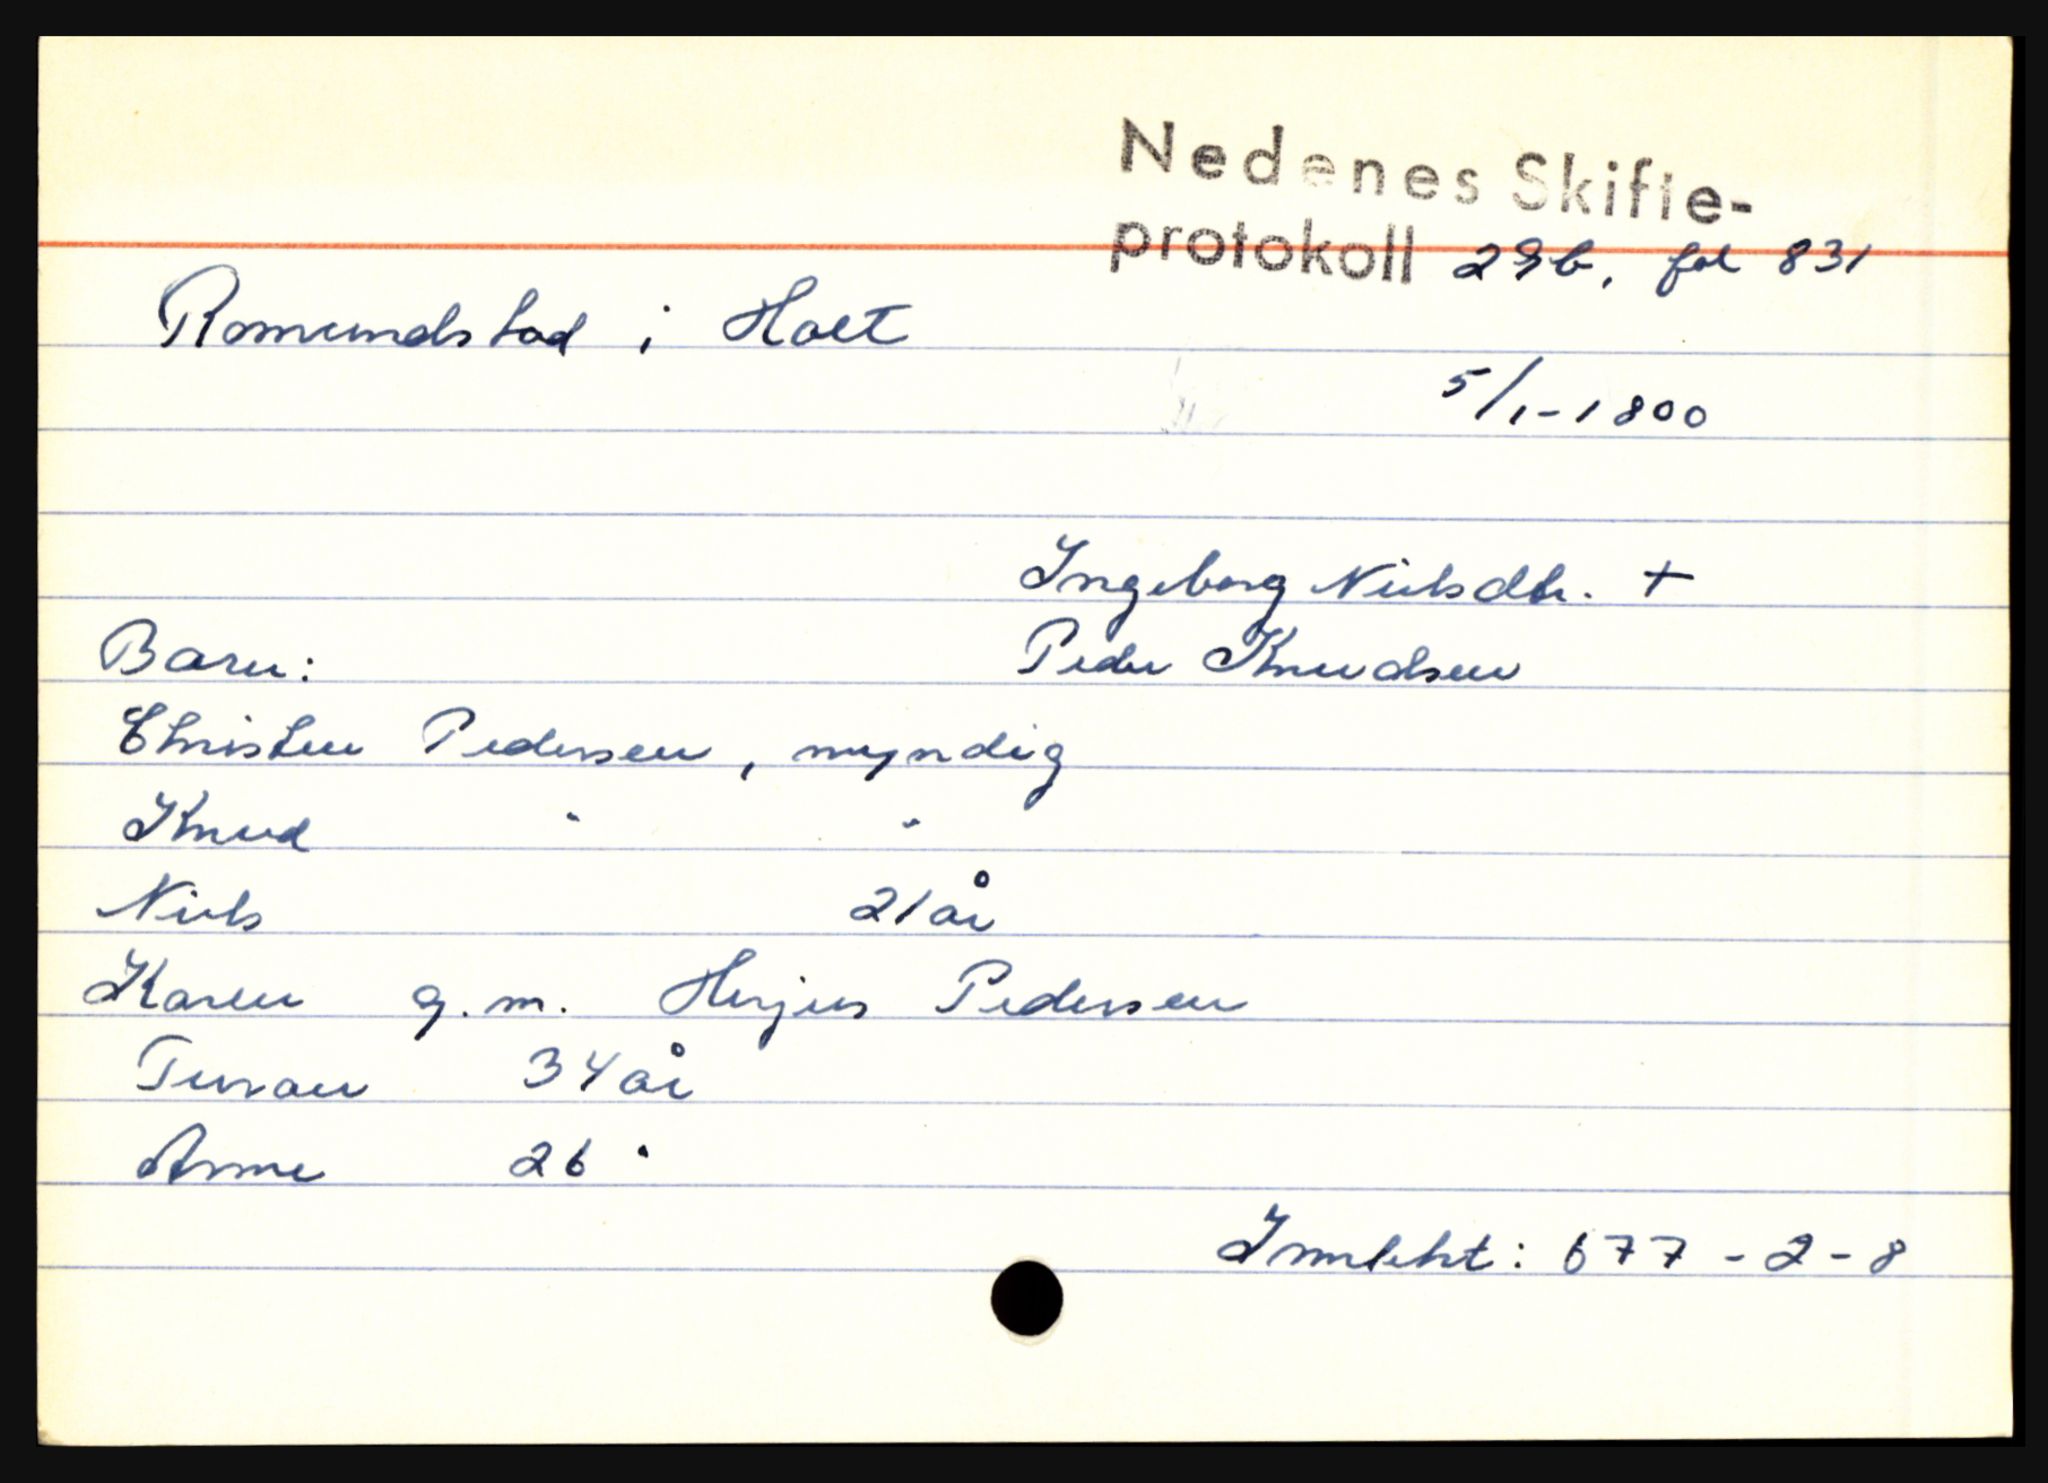 Nedenes Skifte-
protokoll 29b, fol 831
Romundstad i Holt
5/1-1800
Ingeborg Nielsdtr. +
Barn: Peder Knudsen
Christen Pedersen, myndig
Knud " "
Niels 21 år
Karen g.m. Herjus Pedersen
34 år
Anne 26 "
Inntekt: 677-2-8